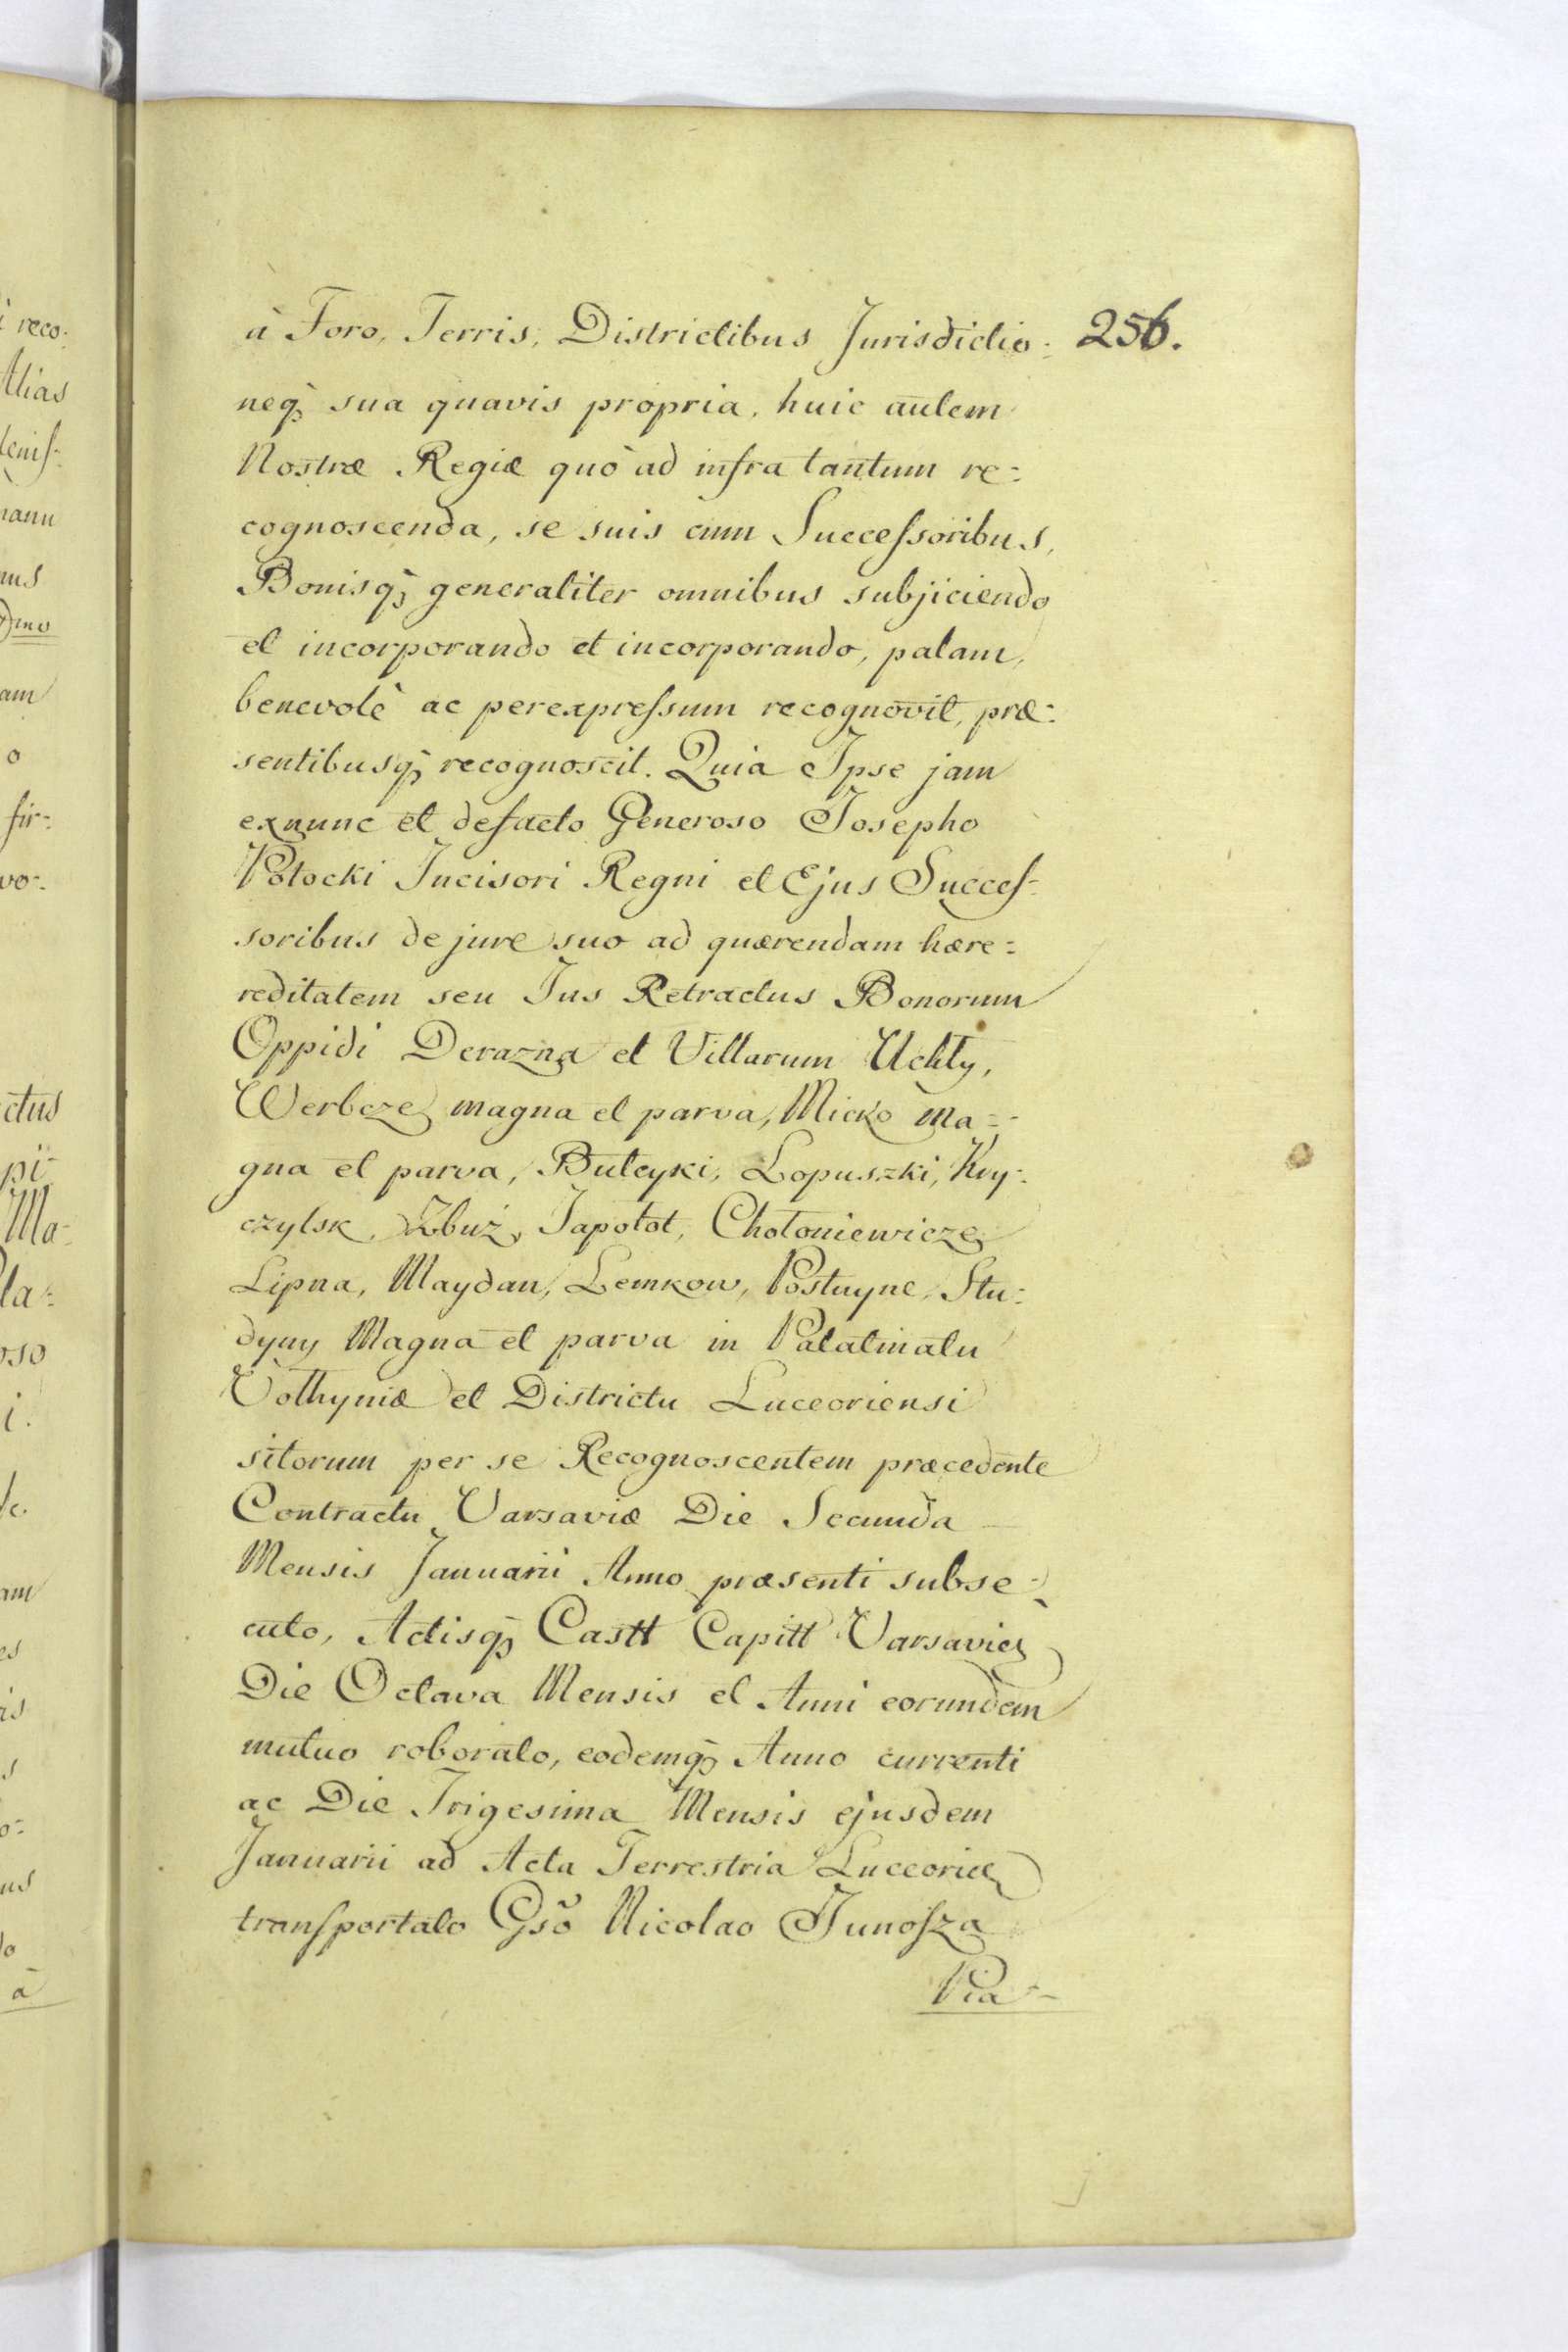 à Foro, Terris, Districtibus Jurisdictio: 256.
neq; sua quavis propria, huic autem
Nostræ Regiæ quò ad infra tantum re:
cognoscenda, se suis cum Succeſsoribus,
Bonisq; generaliter omnibus subjiciendo
et incorporando et incorporando, palam,
benevolè ac perexpreſsum recognovit, præ:
sentibusq; recognoscit. Quia Ipse jam
exnunc et defacto Generoso Josepho
Potocki Incisori Regni et Ejus Succeſ:
soribus de jure suo ad quærendam hære:
reditatem seu Jus Retractus Bonorum
Oppidi Derazna et Villarum Uchły,
Werbcze magna et parva, Micko Ma:
gna et parva, Buteyki, Lopuszki, Kry:
czylsk, Zbuż, Japołot, Chołoniewicze
Lipna, Maydan, Lemkow, Postuyne, Stu:
dyny Magna et parva in Palatinatu
Volhyniæ et Districtu Luceoriensi
sitorum per se Recognoscentem præcedente
Contractu Varsaviæ Die Secunda
Mensis Januarii Anno præsenti subse:
cuto, Actisq; Castt Capitt Varsavien
Die Octava Mensis et Anni eorundem
mutuo roborato, eodemq; Anno currenti
ac Die Trigesima Mensis ejusdem
Januarii ad Acta Terrestria Luceorien
tranſportato Gsō Nicolao Junoſza
Pia-
i reco:
Alias
am
o
fir:
vo:
ctus
pi:
Ma:
la:
oso
i.
am
es
is
s
o:
us
do
à